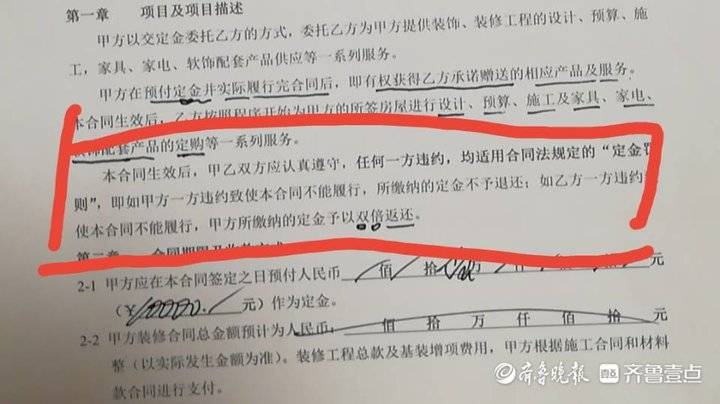 第一章 项目及项目描述
甲方以交定金委托乙方的方式，委托乙方为甲方提供装饰、装修工程的设计、预算、施
工，家具、家电、软饰配套产品供应等一系列服务。
甲方在预付定金并实际履行完合同后，即有权获得乙方承诺赠送的相应产品及服务。
本合同生效后，乙方按照程序开始为甲方的所签房屋进行设计、预算、施工及家具、家电、
软饰配套产品的定购等一系列服务。
本合同生效后，甲乙双方应认真遵守，任何一方违约，均适用合同法规定的“定金罚
则”，即如甲方一方违约致使本合同不能履行，所缴纳的定金不予退还；如乙方一方违约
使本合同不能履行，甲方所缴纳的定金予以双倍返还。
第二章 合同期限及收款方式
2-1 甲方应在本合同签定之日预付人民币 佰 拾 万 仟 佰 拾 元
（¥10000. 元）作为定金。
2-2 甲方装修合同总金额预计为人民币： 佰 拾 万 仟 佰 拾 元
整（以实际发生金额为准）。装修工程总款及基装增项费用，甲方根据施工合同和材料
款合同进行支付。
齐鲁晚报 齐鲁壹点